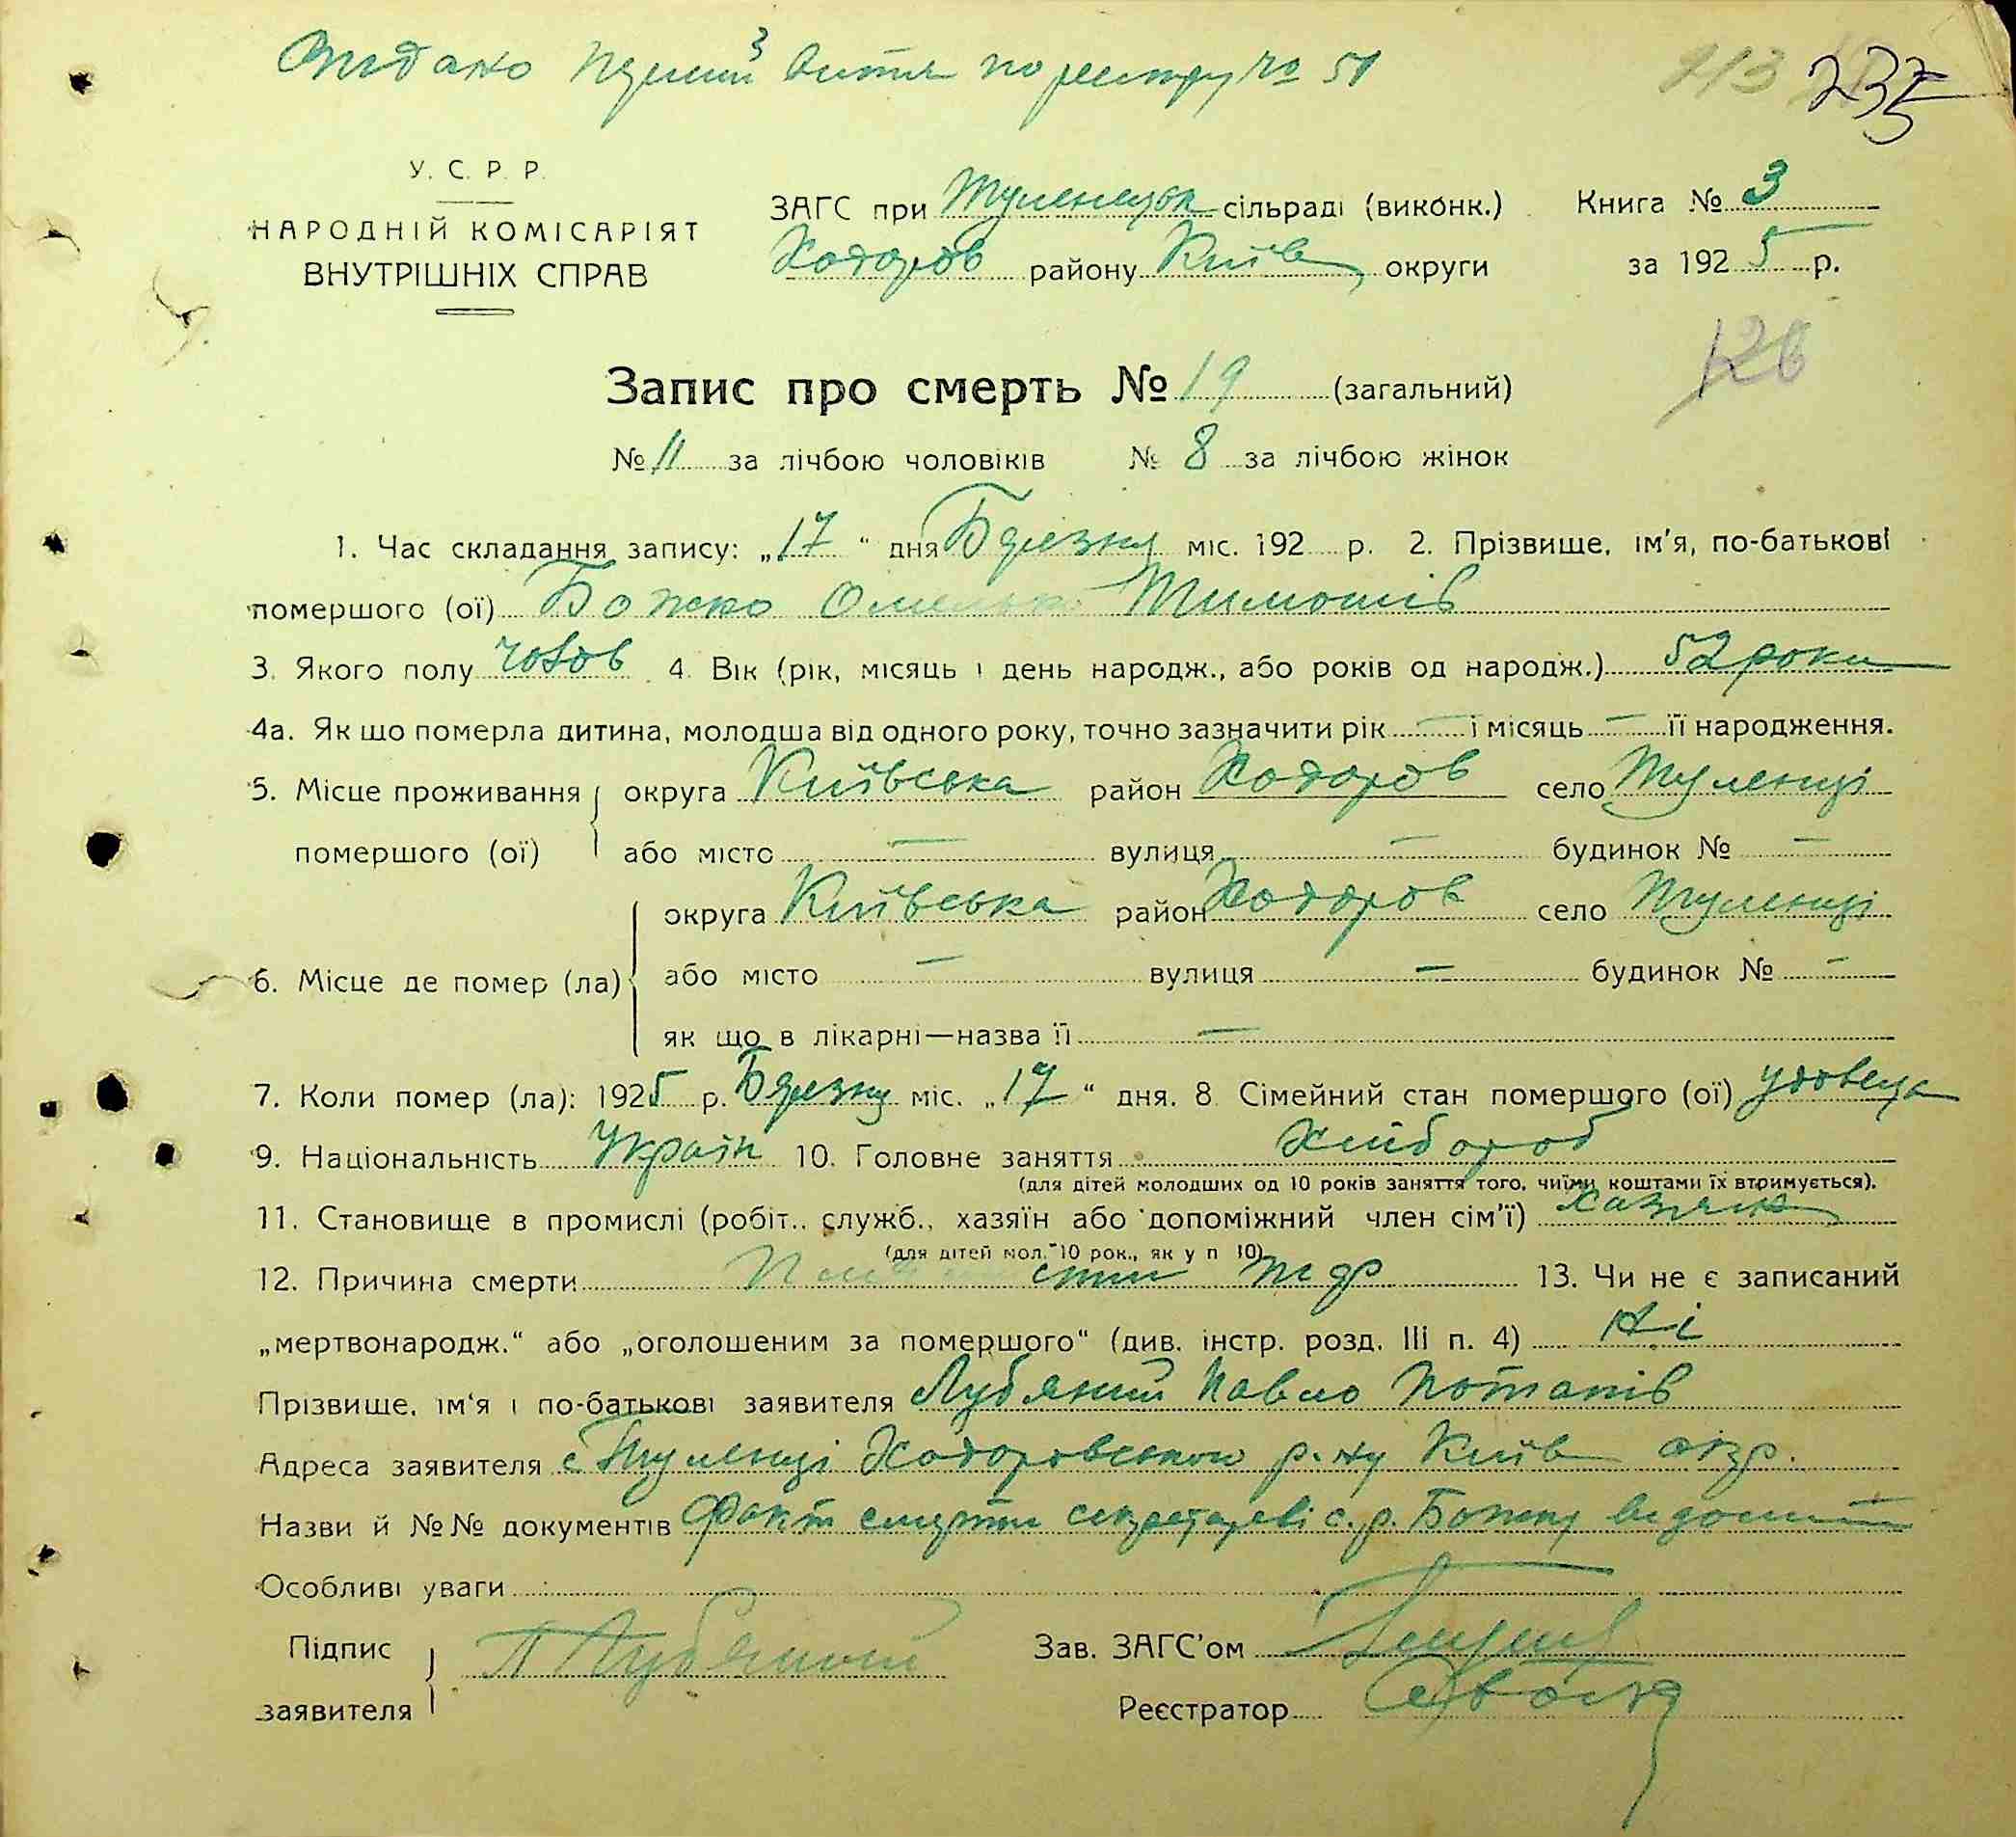 Видано Перший витяг по реєстру № 51
213 235
У. С. Р. Р.
НАРОДНІЙ КОМІСАРІЯТ
ВНУТРІШНІХ СПРАВ
ЗАГС при Тулинецьк сільраді (виконк.) Книга № 3
Ходоров району Київ округи за 1925 р.
126
Запис про смерть № 19 (загальний)
№ 11 за лічбою чоловіків № 8 за лічбою жінок
1. Час складання запису: „17“ дня Березня міс. 192 р. 2. Прізвище, ім'я, по-батькові
помершого (ої) Божко Омелько Тимошів
3. Якого полу чолов 4. Вік (рік, місяць і день народж., або років од народж.) 52 роки
4а. Як що померла дитина, молодша від одного року, точно зазначити рік — і місяць — її народження.
5. Місце проживання округа Київська район Ходоров село Тулинці
помершого (ої) або місто — вулиця — будинок № —
округа Київська район Ходоров село Тулинці
6. Місце де помер (ла) або місто — вулиця — будинок № —
як що в лікарні—назва її —
7. Коли помер (ла): 1925 р. Березня міс. „17“ дня. 8. Сімейний стан помершого (ої) удовець
9. Національність Україн 10. Головне заняття Хлібороб
(для дітей молодших од 10 років заняття того, чиїми коштами їх втримується).
11. Становище в промислі (робіт., служб., хазяїн або допоміжний член сім'ї) хазяїн
(для дітей мол. 10 рок., як у п 10)
12. Причина смерти 13. Чи не є записаний
„мертвонародж.“ або „оголошеним за помершого“ (див. інстр. розд. III п. 4) Ні
Прізвище, ім'я і по-батькові заявителя Лубяний Павло Потапів
Адреса заявителя с Тулинці Ходоровського р-ну Київ окр.
Назви й №№ документів Факт смерти секретареві с. р. Божку відомий
Особливі уваги
Підпис
заявителя П Лубяной
Зав. ЗАГС'ом
Реєстратор